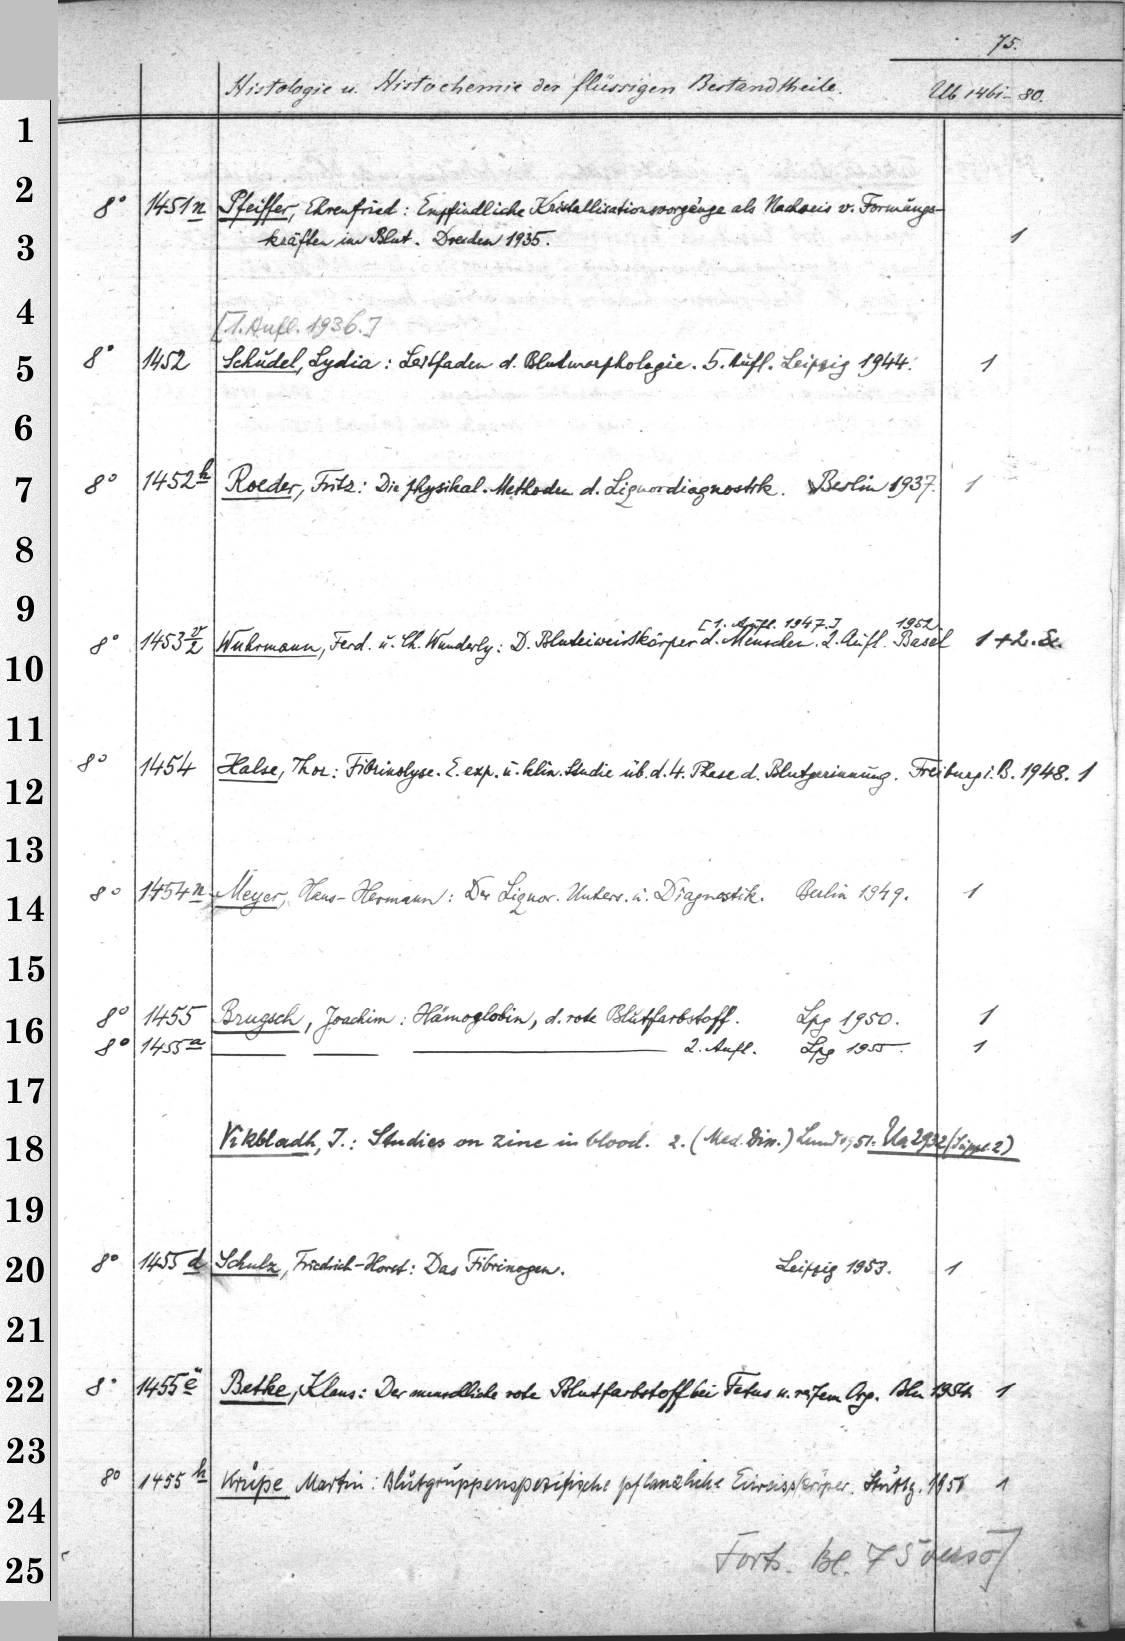 75.
Histologie u. Histochemie der flüssigen Bestandtheile. Ub 1461-80.
1
2
8° 1451n Pfeiffer, Ehrenfried: Empfindliche Kristallisationsvorgänge als Nachweis v. Formungs-
3
kräften im Blut. Dresden 1935. 1
4
[1. Aufl. 1936.]
5
8° 1452 Schudel, Lydia: Leitfaden d. Blutmorphologie. 5. Aufl. Leipzig 1944. 1
6
7
8° 1452h Roeder, Fritz: Die physikal. Methoden d. Liquordiagnostik. Berlin 1937. 1
8
9
[1. Aufl. 1947.] 1952.
10
8° 1453 v/2 Wuhrmann, Ferd. u. Ch. Wunderly: D. Bluteiweisskörper d. Menschen. 2. Aufl. Basel 1+2. Ex.
11
12
8° 1454 Halse, Thor: Fibrinolyse. E. exp. u. klin. Studie üb. d. 4. Phase d. Blutgerinnung. Freiburg i. B. 1948. 1
13
14
8° 1454n Meyer, Hans-Hermann: Der Liquor. Unters. u. Diagnostik. Berlin 1949. 1
15
16
8° 1455 Brugsch, Joachim: Hämoglobin, d. rote Blutfarbstoff. Lpg 1950. 1
8° 1455a — — — 2. Aufl. Lpg 1955. 1
17
18
Vikbladh, I.: Studies on zinc in blood. 2. (Med. Diss.) Lund 1951. Un 2932 (Suppl. 2)
19
20
8° 1455d Schulz, Friedrich-Horst: Das Fibrinogen. Leipzig 1953. 1
21
22
8° 1455e Betke, Klaus: Der menschliche rote Blutfarbstoff bei Fetus u. reifem Org. Bln 1954 1
23
8° 1455h Krüpe Martin: Blutgruppenspezifische pflanzliche Eiweisskörper. Stuttg. 1956 1
24
25
Forts. Bl. 75 verso]